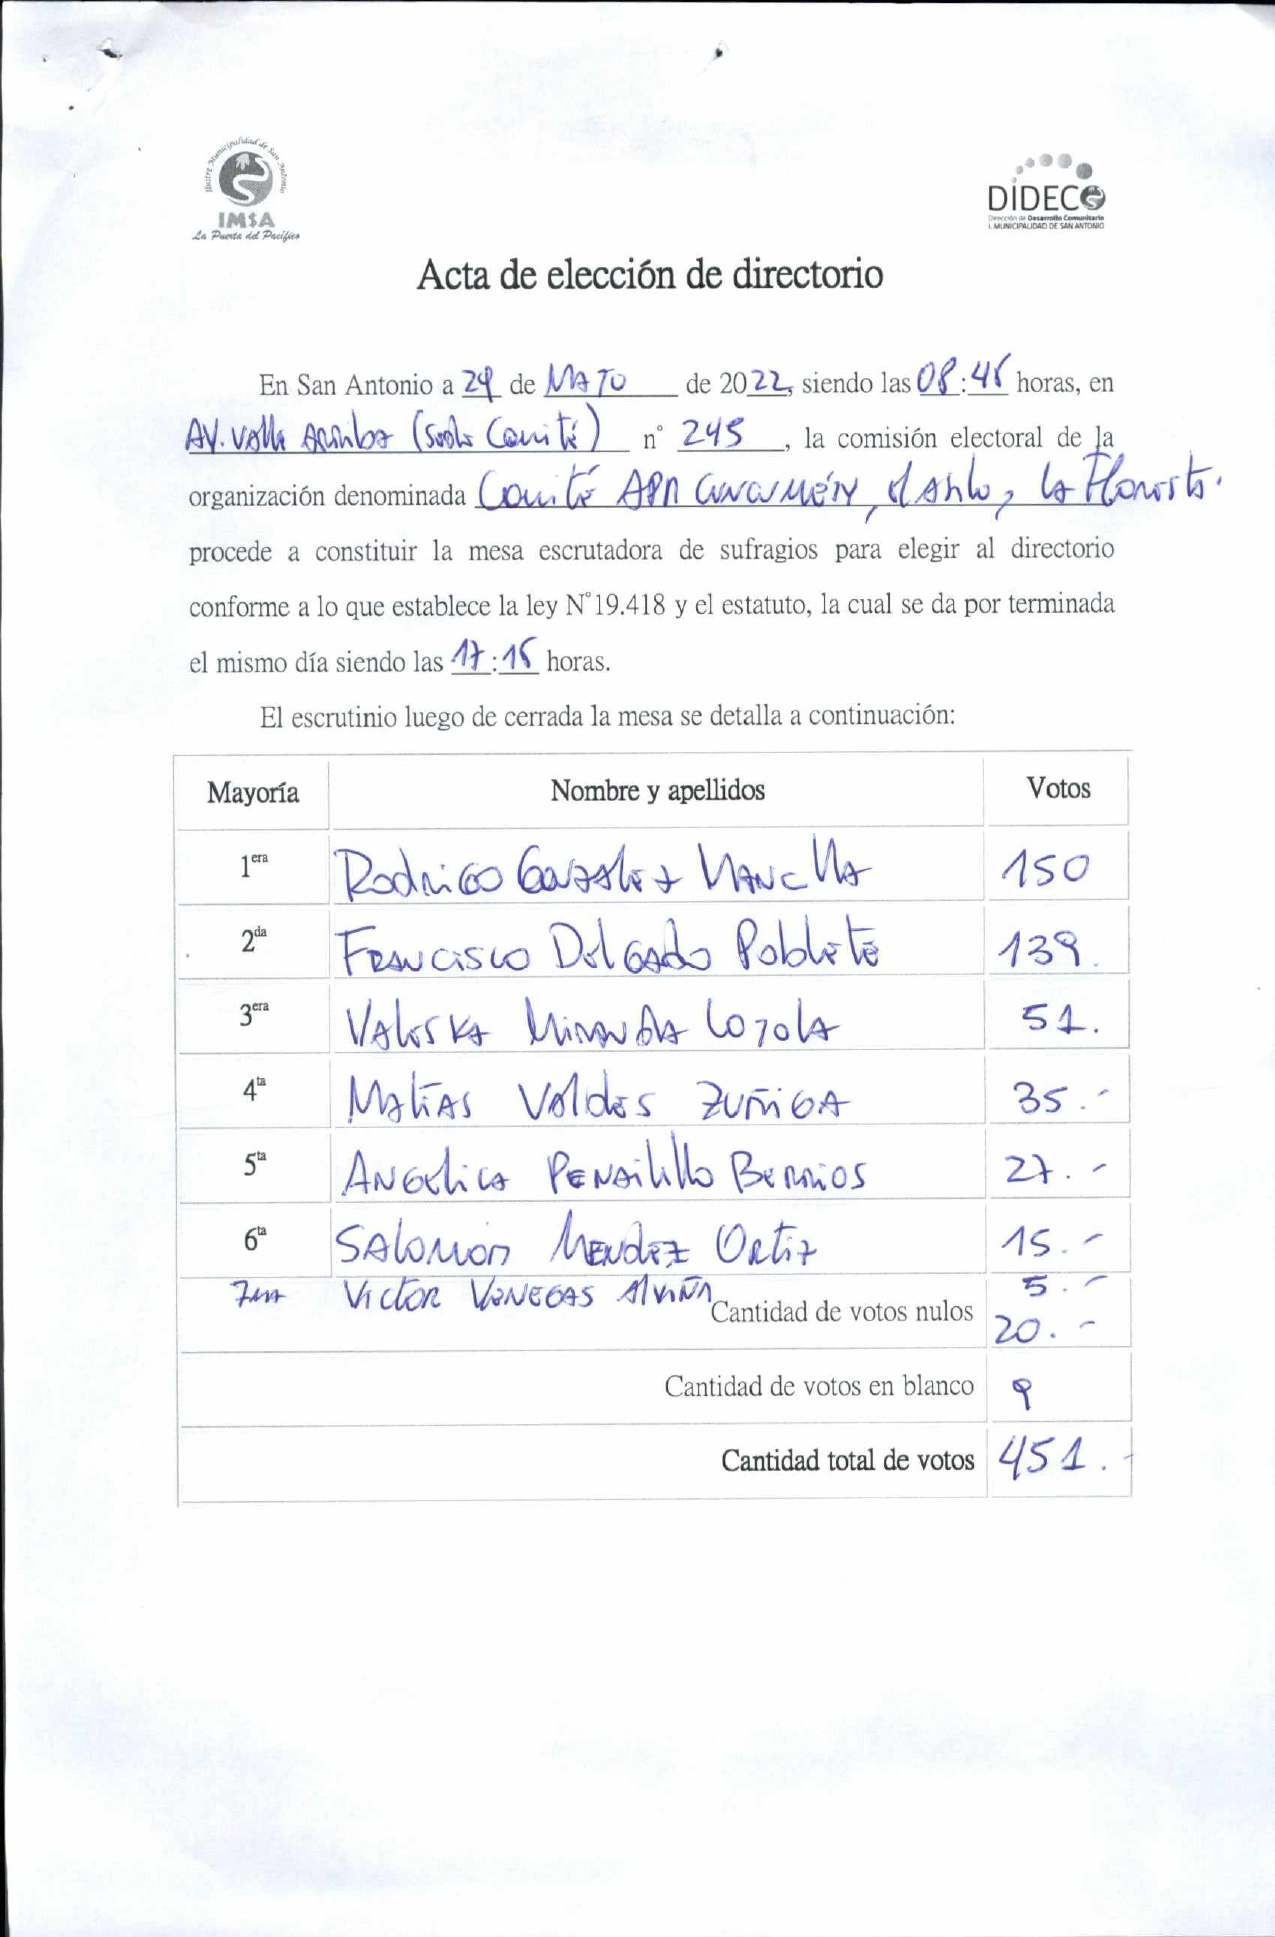 Ilustre Municipalidad de San Antonio
IMSA
La Puerta del Pacífico
DIDECO
Dirección de Desarrollo Comunitario
I. MUNICIPALIDAD DE SAN ANTONIO
Acta de elección de directorio
En San Antonio a 29 de MAYO de 2022, siendo las 08:45 horas, en
AV. Valle ARRIBA (Sede Comité) n° 245, la comisión electoral de la
organización denominada Comité APR CUNCUMÉN, el Asilo, la Floresta.
procede a constituir la mesa escrutadora de sufragios para elegir al directorio
conforme a lo que establece la ley N°19.418 y el estatuto, la cual se da por terminada
el mismo día siendo las 17:15 horas.
El escrutinio luego de cerrada la mesa se detalla a continuación:
Mayoría Nombre y apellidos Votos
1era Rodrigo González Mancilla 150
2da Francisco Delgado Poblete 139.
3era Valeska Miranda Loyola 51.
4ta Matías Valdes Zuñiga 35.-
5ta Angelica Penailillo Berrios 27.-
6ta Salomon Mendez Ortiz 15.-
7ma Victor Venegas Alviña 5.-
Cantidad de votos nulos 20.-
Cantidad de votos en blanco 9
Cantidad total de votos 451.-